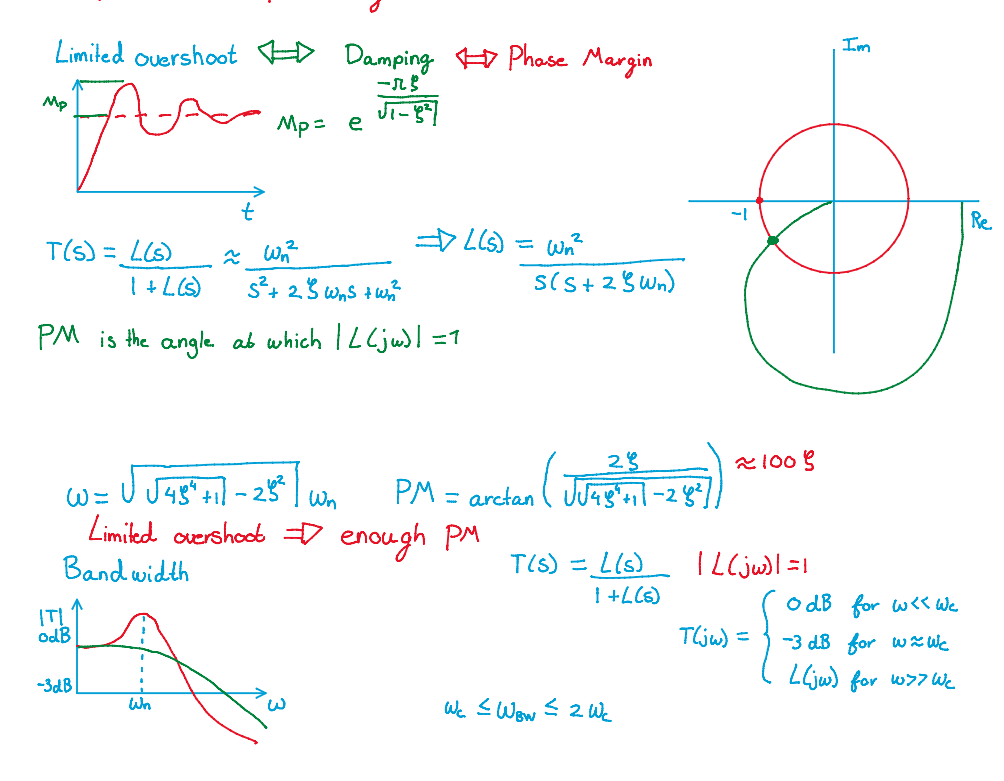 Limited overshoot ⇔ Damping ⇔ Phase Margin
Mp
t
Mp = e^(-πξ/√(1-ξ²))
Im
Re
-1
T(s) = L(s)/(1+L(s)) ≈ ωn²/(s²+2ξωns+ωn²) ⇒ L(s) = ωn²/(s(s+2ξωn))
PM is the angle at which |L(jω)| = 1
ω = √(√(4ξ⁴+1) - 2ξ²) ωn
PM = arctan(2ξ/√(√(4ξ⁴+1) - 2ξ²)) ≈ 100ξ
Limited overshoot ⇒ enough PM
Bandwidth
T(s) = L(s)/(1+L(s)) |L(jω)| = 1
|T|
0dB
-3dB
ωn
ω
T(jω) = {
0 dB for ω<<ωc
-3 dB for ω≈ωc
L(jω) for ω>>ωc
ωc ≤ ωBW ≤ 2ωc